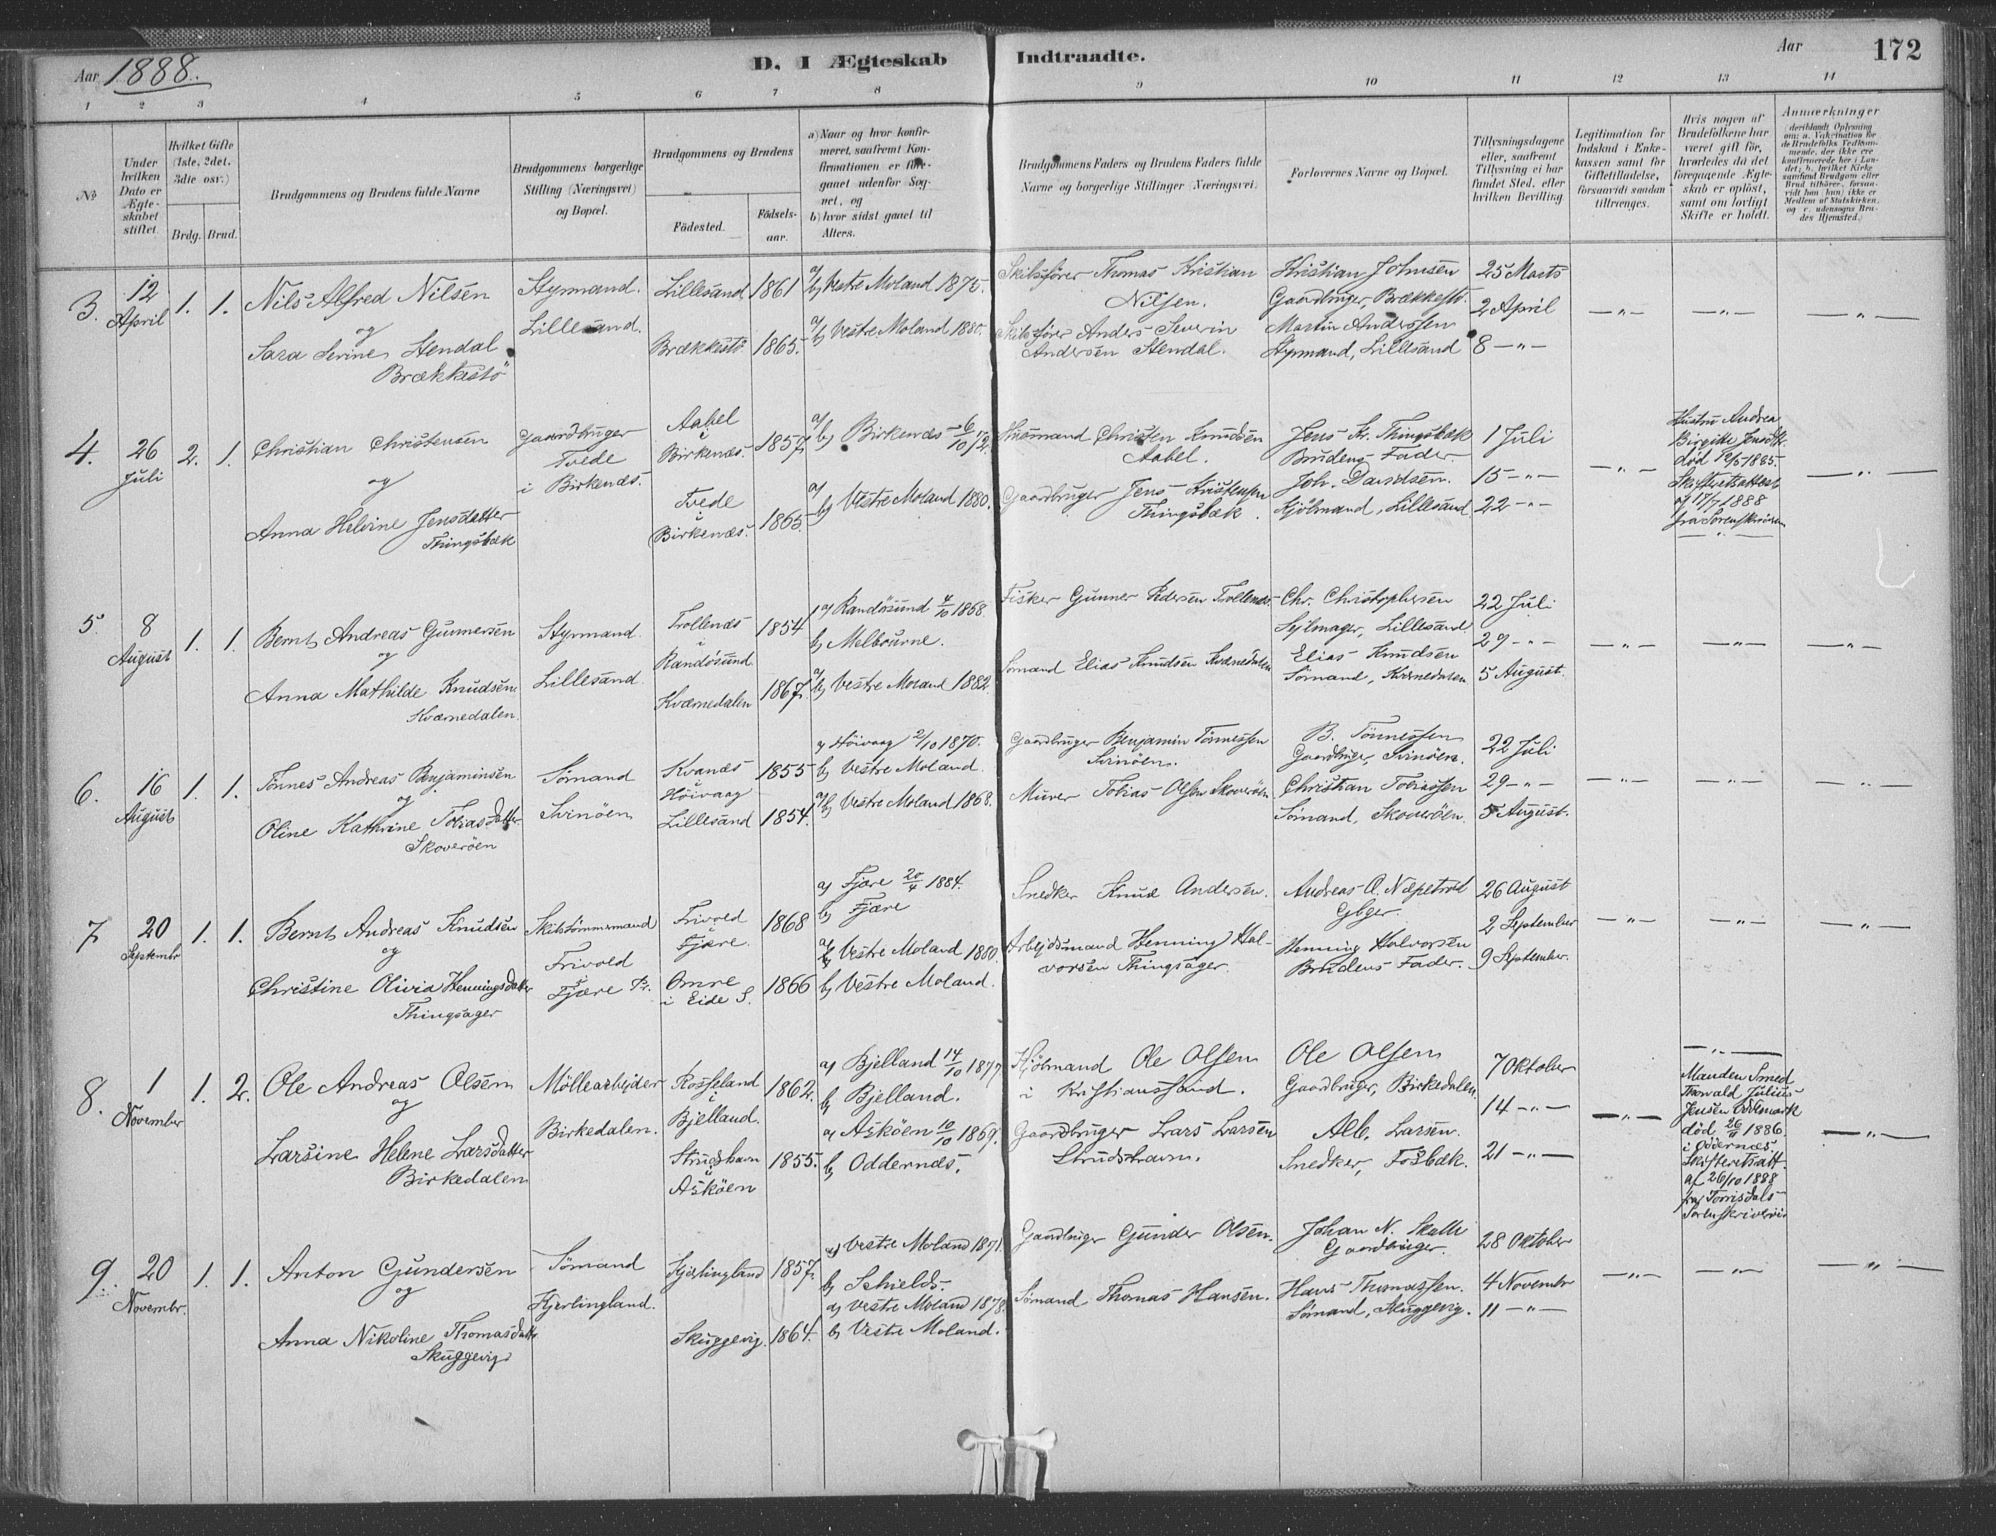 Aar 1888.
D. I Ægteskab Indtraadte.
Aar 172
1 2 3 4 5 6 7 8 9 10 11 12 13 14
No
Under hvilken Dato er Ægteskabet stiftet.
Hvilket Gifte (1ste, 2det, 3die osv.)
Brdg. Brud.
Brudgommens og Brudens fulde Navne
Brudgommens borgerlige Stilling (Næringsvei) og Bopæl.
Brudgommens og Brudens
Fødested.
Fødselsaar.
a) Naar og hvor konfirmeret, saafremt Konfirmationen er foregaaet udenfor Sognet, og
b) hvor sidst gaaet til Alters.
Brudgommens Faders og Brudens Faders fulde Navne og borgerlige Stillinger (Næringsvei).
Forlovernes Navne og Bopæl.
Tillysningsdagene eller, saafremt Tillysning ei har fundet Sted, efter hvilken Bevilling.
Legitimation for Indskud i Enkekassen samt for Giftetilladelse, forsaavidt saadan tiltrænges.
Hvis nogen af Brudefolkene har været gift før, hvorledes da det foregaaende Ægteskab er opløst, samt om lovligt Skifte er holdt.
Anmærkninger
3. 12 April 1. 1.
Nils Alfred Nilsen
og
Sara Serine Stendal
Brækkestö
Styrmand.
Lillesand.
Lillesand 1861
Brækkestö 1865.
a/ b/ Vestre Moland 1875.
a/ b/ Vestre Moland 1880.
Skibsfører Thomas Kristian
Nilsen.
Skibsfører Anders Severin
Andersen Stendal.
Kristian Johnsen
Gaardbruger, Brækkestö.
Martin Anderssen
Styrmand, Lillesand
25 Marts
2 April
8 —"—
—"— —"— —"—
4. 26 Juli 2. 1.
Christian Christensen
og
Anna Helvine Jensdatter
Thingsbæk
Gaardbruger
Tvede
i Birkenæs.
Aabel
i
Birkenæs. 1857.
Tvede
i
Birkenæs. 1865.
a/ b/ Birkenæs 6/10 72.
a/ b/ Vestre Moland 1880.
Husmand Christen Knudsen
Aabel.
Gaardbruger Jens Kristensen
Thingsbæk.
Jens Kr. Thingsbæk
Brudens Fader
Joh. Davidsen.
Kjölmand, Lillesand
1 Juli
15 —"—
22 —"—
—"—
Hustru Andrea
Birgitte Jensdtr.
död 12/5 1885.
Skifteretsattest
af 17/7 1888
fra Sorenskriveren
—"—
—"—
5. 8 August 1. 1.
Bernt Andreas Gunnersen
og
Anna Mathilde Knudsen
Kvarnedalen.
Styrmand.
Lillesand.
Trollenæs
i
Randösund. 1854
Kværnedalen 1867.
a/ Randösund 4/10 1868.
b/ Melbourne.
a/ b/ Vestre Moland 1882.
Fisker Gunner Pedersen Trollenæs.
Sømand Elias Knudsen Kvænedalen
Chr. Christophersen
Sejlmager, Lillesand
Elias Knudsen
Sømand, Kværnedalen
22 Juli
29 —"—
5 August.
—"— —"— —"—
6. 16 August 1. 1.
Tönnes Andreas Benjaminsen
og
Oline Kathrine Tobiasdatter
Skoveröen
Sømand
Svinöen
Kvanæs
i
Höivaag 1855
Lillesand 1854.
a/ Höivaag 2/10 1870.
b/ Vestre Moland.
a/ b/ Vestre Moland 1868.
Gaardbruger Benjamin Tönnessen
Svinöen.
Murer Tobias Olsen Skoveröen.
B. Tönnessen
Gaardbruger, Svinöen.
Christian Tobiassen
Sømand, Skoveröen.
22 Juli
29 —"—
5 August.
—"— —"— —"—
7 20 Septembr 1. 1.
Bernt Andreas Knudsen
og
Christine Olivia Henningsdatter
Thingsager
Skibstømmermand
Frivold
i
Fjære Pr.
Frivold
i
Fjære. 1868
Omre
i Eide S. 1866
a/ Fjære 20/4 1884.
b/ Fjære
a/ Vestre Moland 1880.
b/ Vestre Moland.
Snedker Knud Andersen.
Arbejdsmand Henning Halvorsen Thingsager.
Andreas O. Næpetvedt
Gbger.
Henning Halvorsen
Brudens Fader.
26 August
2 September
9 September.
—"— —"— —"—
8. 1 November 1. 2.
Ole Andreas Olsen
og
Larsine Helene Larsdatter
Birkedalen
Möllearbejder
Birkedalen.
Rosseland
i
Bjelland. 1862.
Strudshavn
i
Asköen 1855.
a/ Bjelland 14/10 1877
b/ Bjelland.
a/ Asköen 10/10 1869.
b/ Oddernæs.
Kjölmand Ole Olsen
i Kristianssand.
Gaardbruger Lars Larsen
Strudshavn.
Ole Olsen
Gaardbruger, Birkedalen.
Alb. Larsen.
Snedker, Fosbæk.
7 Oktober
14 —"—
21 —"—
—"—
—"—
Manden Smed
Thorvald Julius
Jensen Oddemark
död 26/11 1886.
i Oddernæs.
Skifteretsatt.
af 26/10 1888
fra Torrisdals
Sorenskriveri
—"—
9. 20 Novembr. 1. 1.
Anton Gundersen
og
Anna Nikoline Thomasdatter
Skuggevig
Sømand
Kjerlingland.
Kjerlingland 1857.
Skuggevig. 1864.
a/ Vestre Moland 1871.
b/ Schields.
a/ Vestre Moland 1878.
b/ Vestre Moland.
Gaardbruger Gunder Olsen.
Sømand Thomas Hansen.
Johan N. Skalle
Gaardbruger.
Hans Thomassen.
Sømand, Skuggevig.
28 Oktober
4 Novembr
11 —"—
—"— —"— —"—